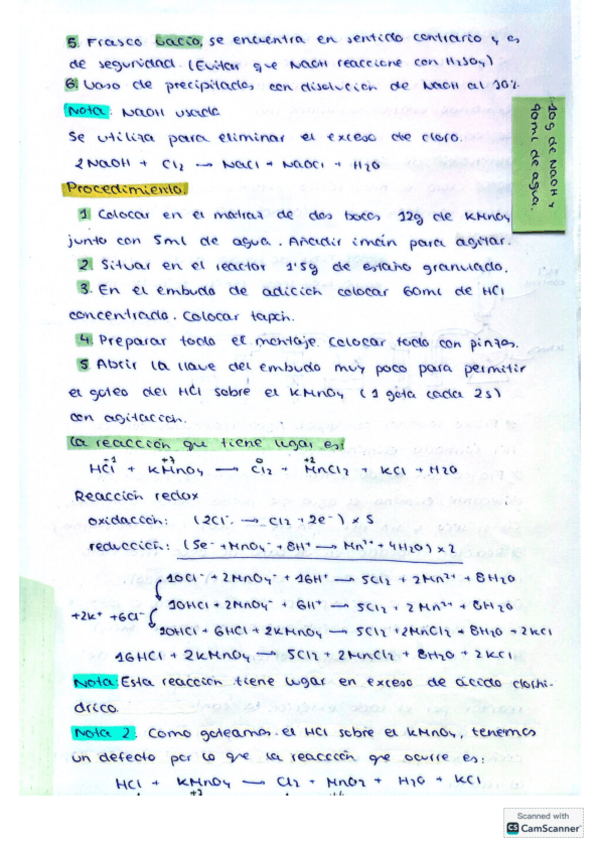 5. Frasco bacio, se encuentra en sentido contrario y es
de seguridad. (Evitar que NaOH reaccione con H₂SO₄)
6. Vaso de precipitados con disolución de NaOH al 10%.
Nota: NaOH usada
Se utiliza para eliminar el exceso de cloro.
2NaOH + Cl₂ → NaCl + NaOCl + H₂O
10g de NaOH y
90ml de agua.
Procedimiento.
1 Colocar en el matraz de dos bocas 12g de KMnO₄
junto con 5ml de agua. Añadir imán para agitar.
2. Situar en el reactor 1'5g de estaño granulado.
3. En el embudo de adición colocar 60ml de HCl
concentrado. Colocar tapón.
4. Preparar todo el montaje. Colocar todo con pinzas.
5 Abrir la llave del embudo muy poco para permitir
el goteo del HCl sobre el KMnO₄ (1 gota cada 2s)
con agitación.
La reacción que tiene lugar es:
-1 +7 0 +2
HCl + KMnO₄ → Cl₂ + MnCl₂ KCl + H₂O
Reacción redox
oxidación: (2Cl⁻ → Cl₂ + 2e⁻) x 5
reducción: (5e⁻ + MnO₄⁻ + 8H⁺ → Mn²⁺ + 4H₂O) x 2
10Cl⁻ + 2MnO₄⁻ + 16H⁺ → 5Cl₂ + 2Mn²⁺ + 8H₂O
10HCl + 2MnO₄⁻ + 6H⁺ → 5Cl₂ + 2Mn²⁺ + 8H₂O
+2K⁺ +6Cl⁻
10HCl + 6HCl + 2KMnO₄ → 5Cl₂ + 2MnCl₂ + 8H₂O + 2KCl
16HCl + 2KMnO₄ → 5Cl₂ + 2MnCl₂ + 8H₂O + 2KCl
Nota: Esta reacción tiene lugar en exceso de ácido clorhí-
drico.
Nota 2: Como goteamos el HCl sobre el KMnO₄, tenemos
un defecto por lo que la reacción que ocurre es:
HCl + KMnO₄ → Cl₂ + MnO₂ + H₂O + KCl
Scanned with
CS CamScanner